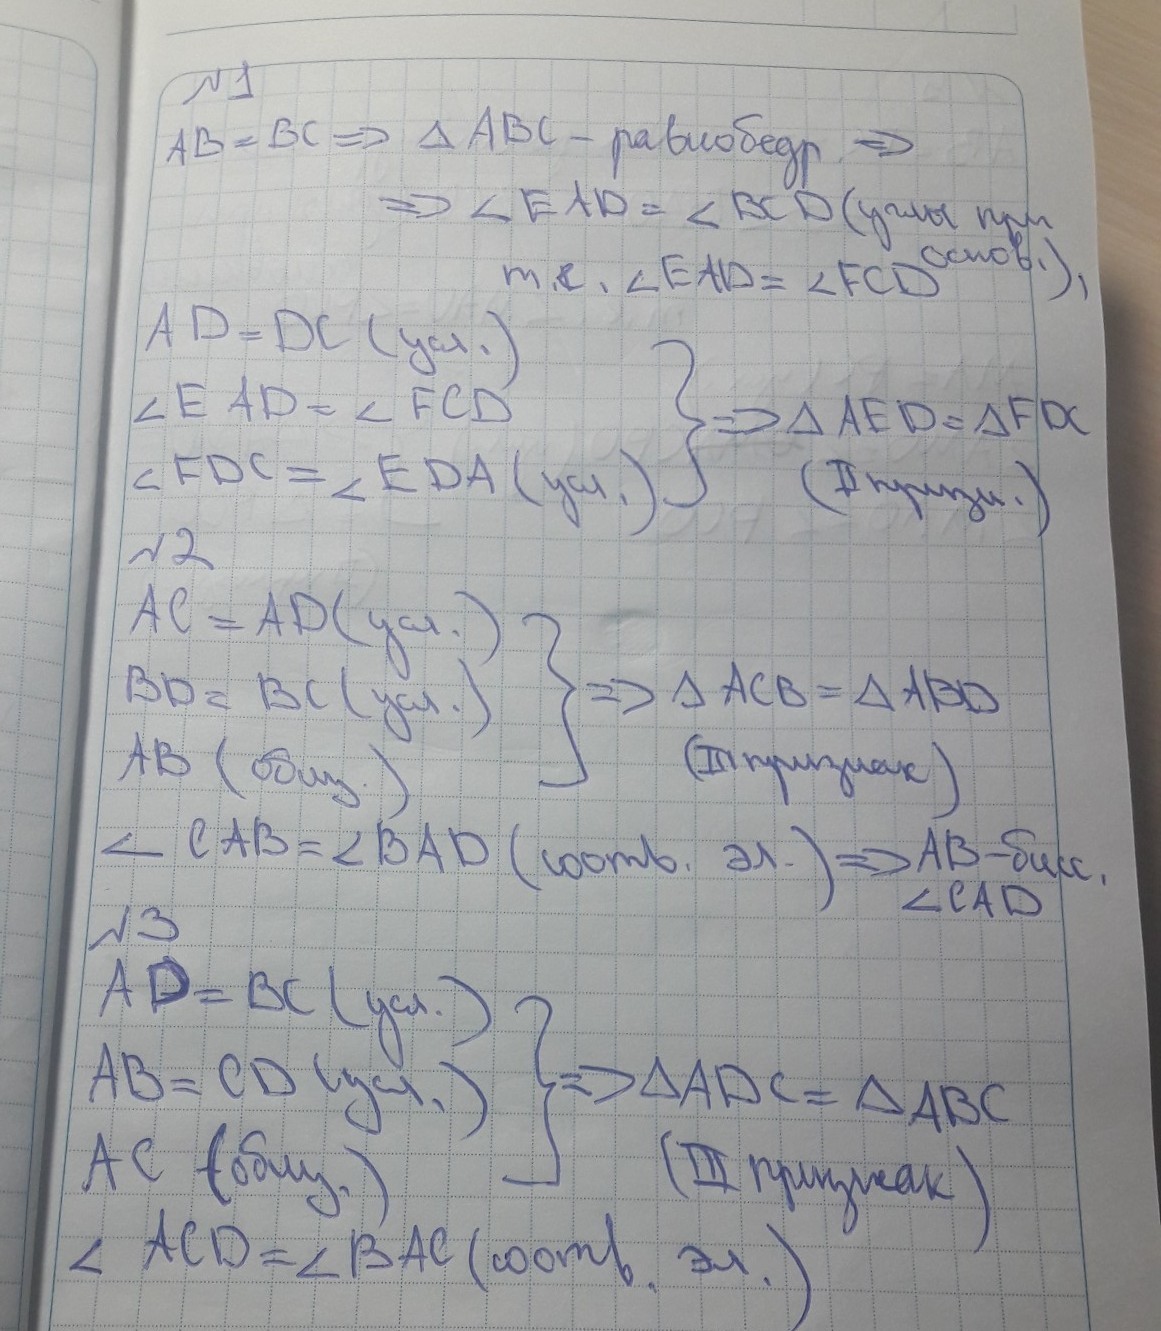 №1
AB = BC => △ ABC – равнобедр =>
=> ∠EAD = ∠BCD (углы при
основ.),
т.е. ∠EAD = ∠FCD
AD = DC (усл.)
∠EAD = ∠FCD
=> △AED = △FDC
∠FDC = ∠EDA (усл.)
(II призн.)
№2
AC = AD (усл.)
BD = BC (усл.)
=> △ACB = △ABD
AB (общ.)
(III признак)
∠CAB = ∠BAD (соотв. эл.) => AB – бисс.
∠CAD
№3
AD = BC (усл.)
AB = CD (усл.)
=> △ADC = △ABC
AC (общ.)
(III признак)
∠ACD = ∠BAC (соотв. эл.)